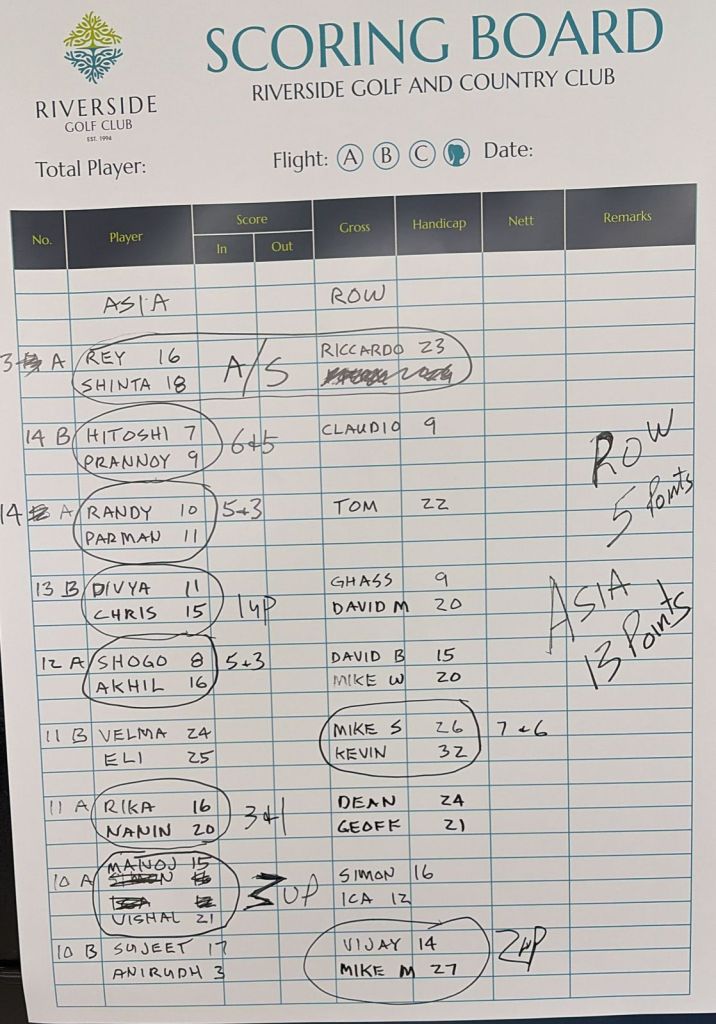 SCORING BOARD
RIVERSIDE GOLF AND COUNTRY CLUB
RIVERSIDE
GOLF CLUB
EST. 1994
Total Player:
Flight: A B C
Date:
No. Player Score In Out Gross Handicap Nett Remarks
ASIA ROW
3 A REY 16 A/S RICCARDO 23
SHINTA 18
14 B HITOSHI 7 6+5 CLAUDIO 9
PRANNOY 9
ROW
5 Points
14 A RANDY 10 5+3 TOM 22
PARMAN 11
13 B DIVYA 11 GHASS 9
CHRIS 15 1up DAVID M 20
ASIA
13 Points
12 A SHOGO 8 5+3 DAVID B 15
AKHIL 16 MIKE W 20
11 B VELMA 24 MIKE S 26 7+6
ELI 25 KEVIN 32
11 A RIKA 16 3+1 DEAN 24
NANIN 20 GEOFF 21
MATNOJ 15
10 A UP SIMON 16
ICA 12
VISHAL 21
10 B SUJEET 17 VIJAY 14 2up
ANIRUDH 3 MIKE M 27